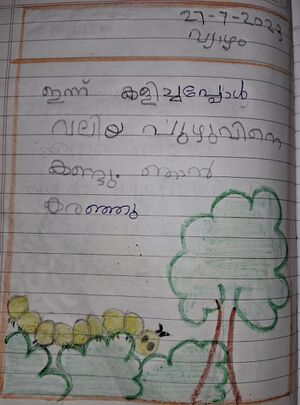 27-7-2023
വ്യാഴം
ഇന്ന് കളിച്ചപ്പോൾ
വലിയ പുഴുവിനെ
കണ്ടു. ഞാൻ
കരഞ്ഞു